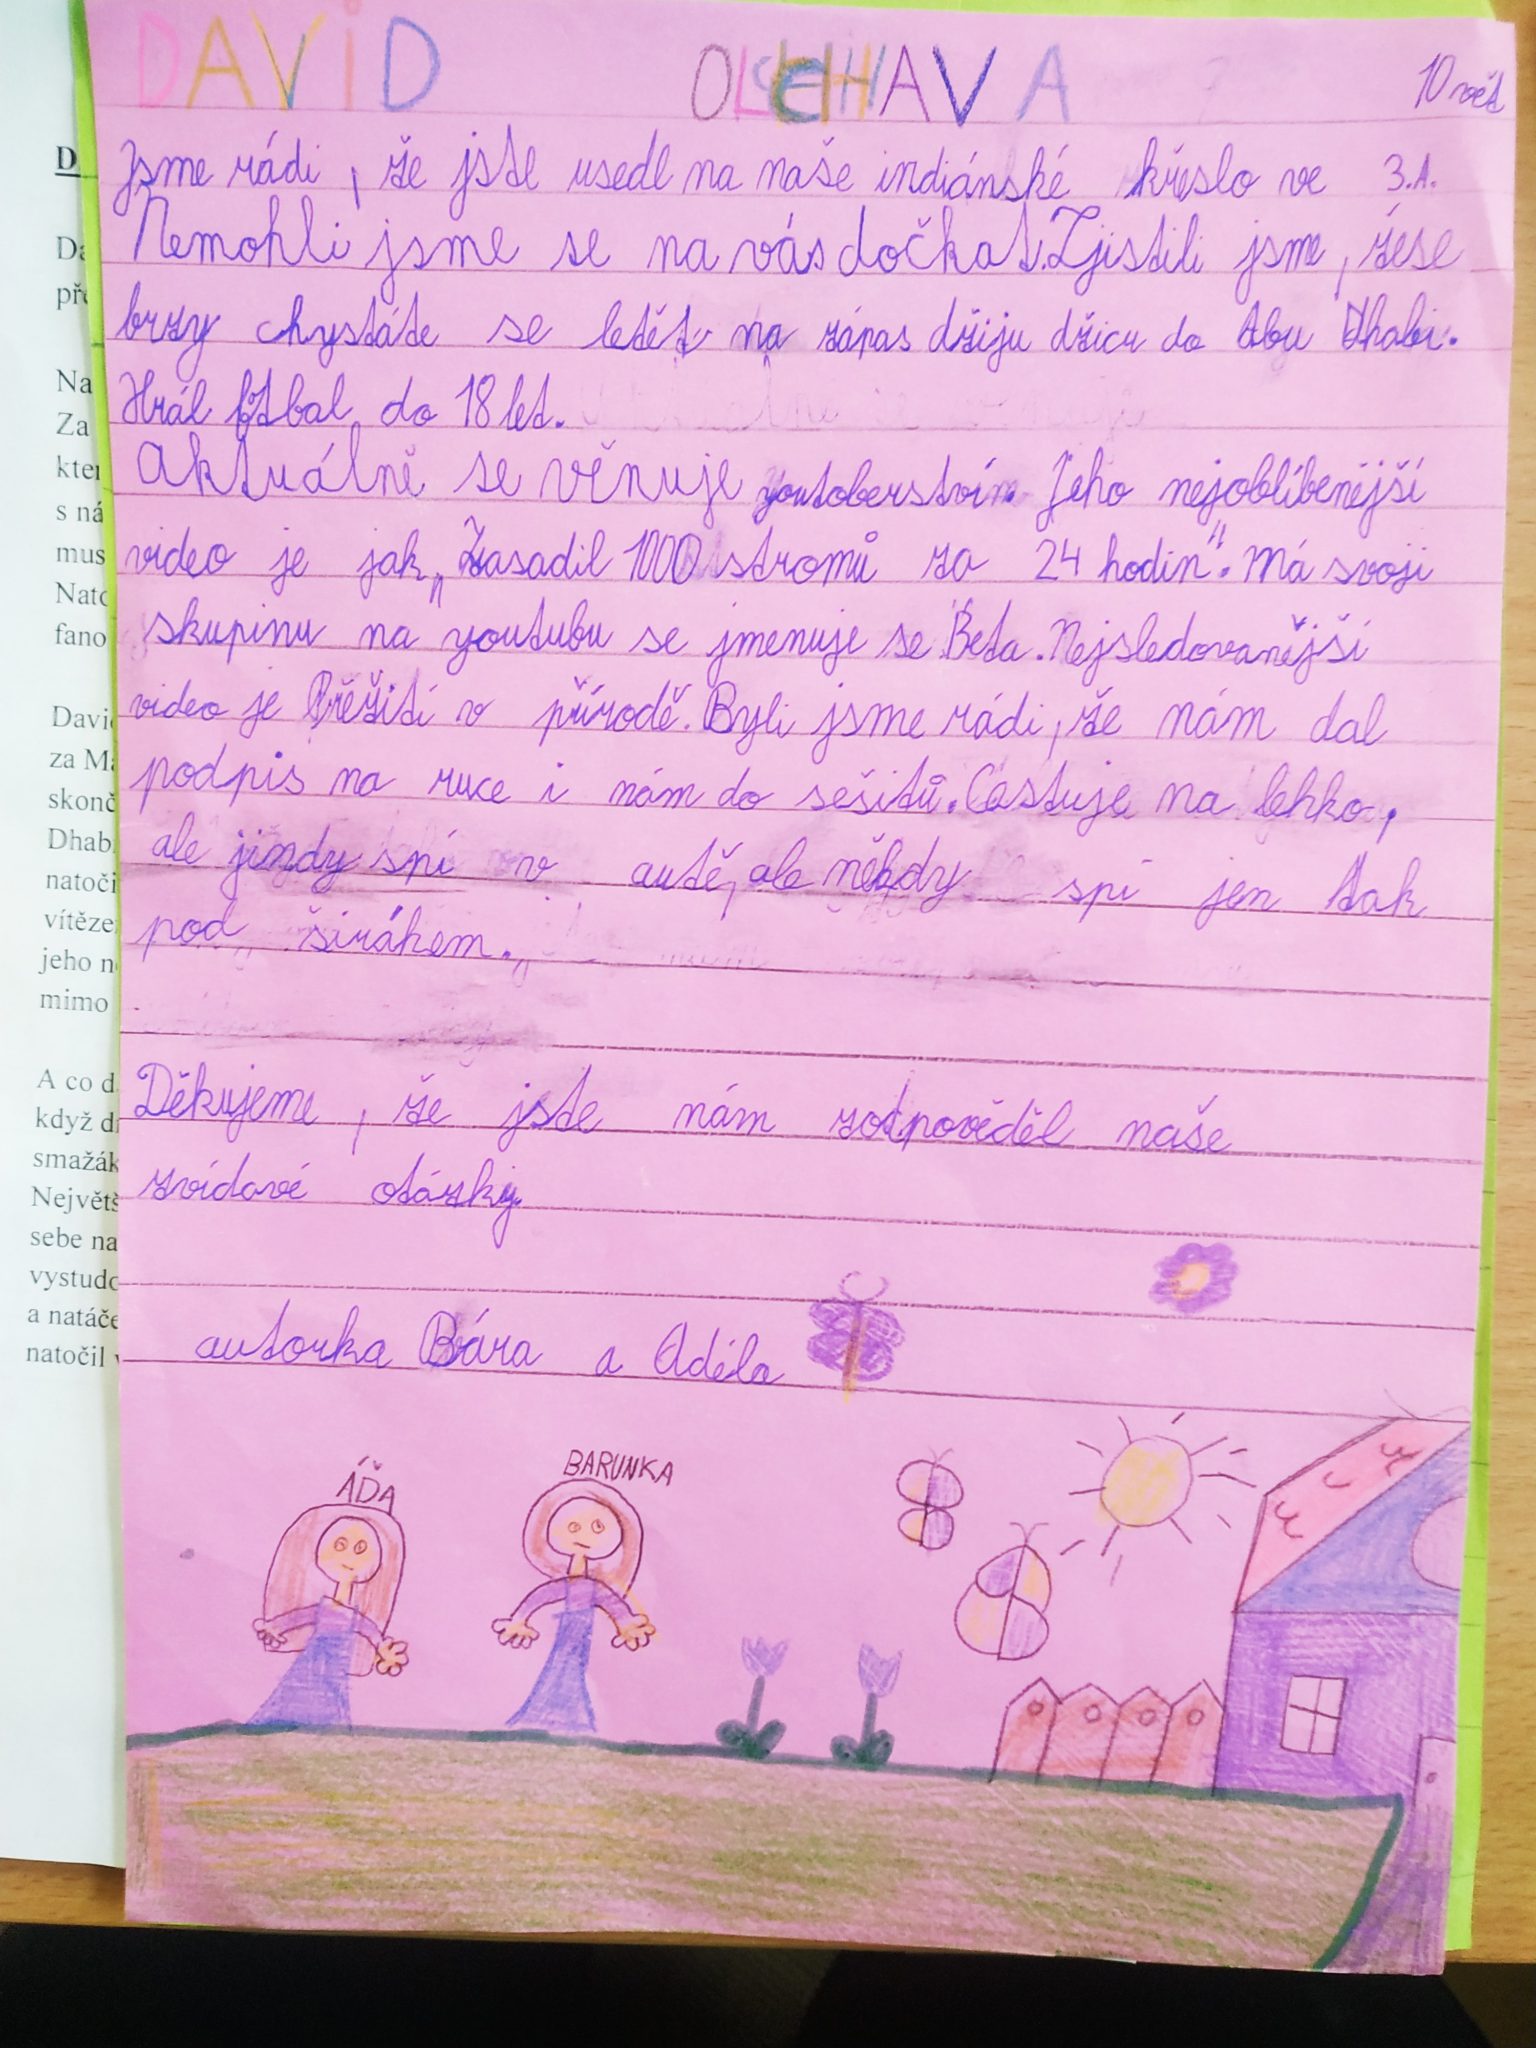 DAVID OLCHAVA 10 vět
Jsme rádi, že jste usedl na naše indiánské křeslo ve 3.A.
Nemohli jsme se na vás dočkat. Zjistili jsme, žese
brzy chystáte se letět na zápas džiju džicu do Abu Dhabi.
Hrál fotbal do 18 let.
Aktuálně se věnuje youtoberstvím. Jeho nejoblíbenější
video je jak „Zasadil 1000 stromů za 24 hodin". Má svoji
skupinu na youtubu se jmenuje se Beta. Nejsledovanější
video je Přežití v přírodě. Byli jsme rádi, že nám dal
podpis na ruce i nám do sešitů. Cestuje na lehko,
ale jindy spí v autě, ale někdy spí jen tak
pod širákem.
Děkujeme, že jste nám zotpověděl naše
zvídavé otázky.
autorka Bára a Adéla
ÁĎA
BARUNKA
D
Da
pře
Na
Za
kter
s ná
mus
Nato
fano
Davi
za Ma
skonč
Dhab
natoči
vítěze
jeho n
mimo
A co d
když d
smažák
Největš
sebe na
vystudo
a natáče
natočil v